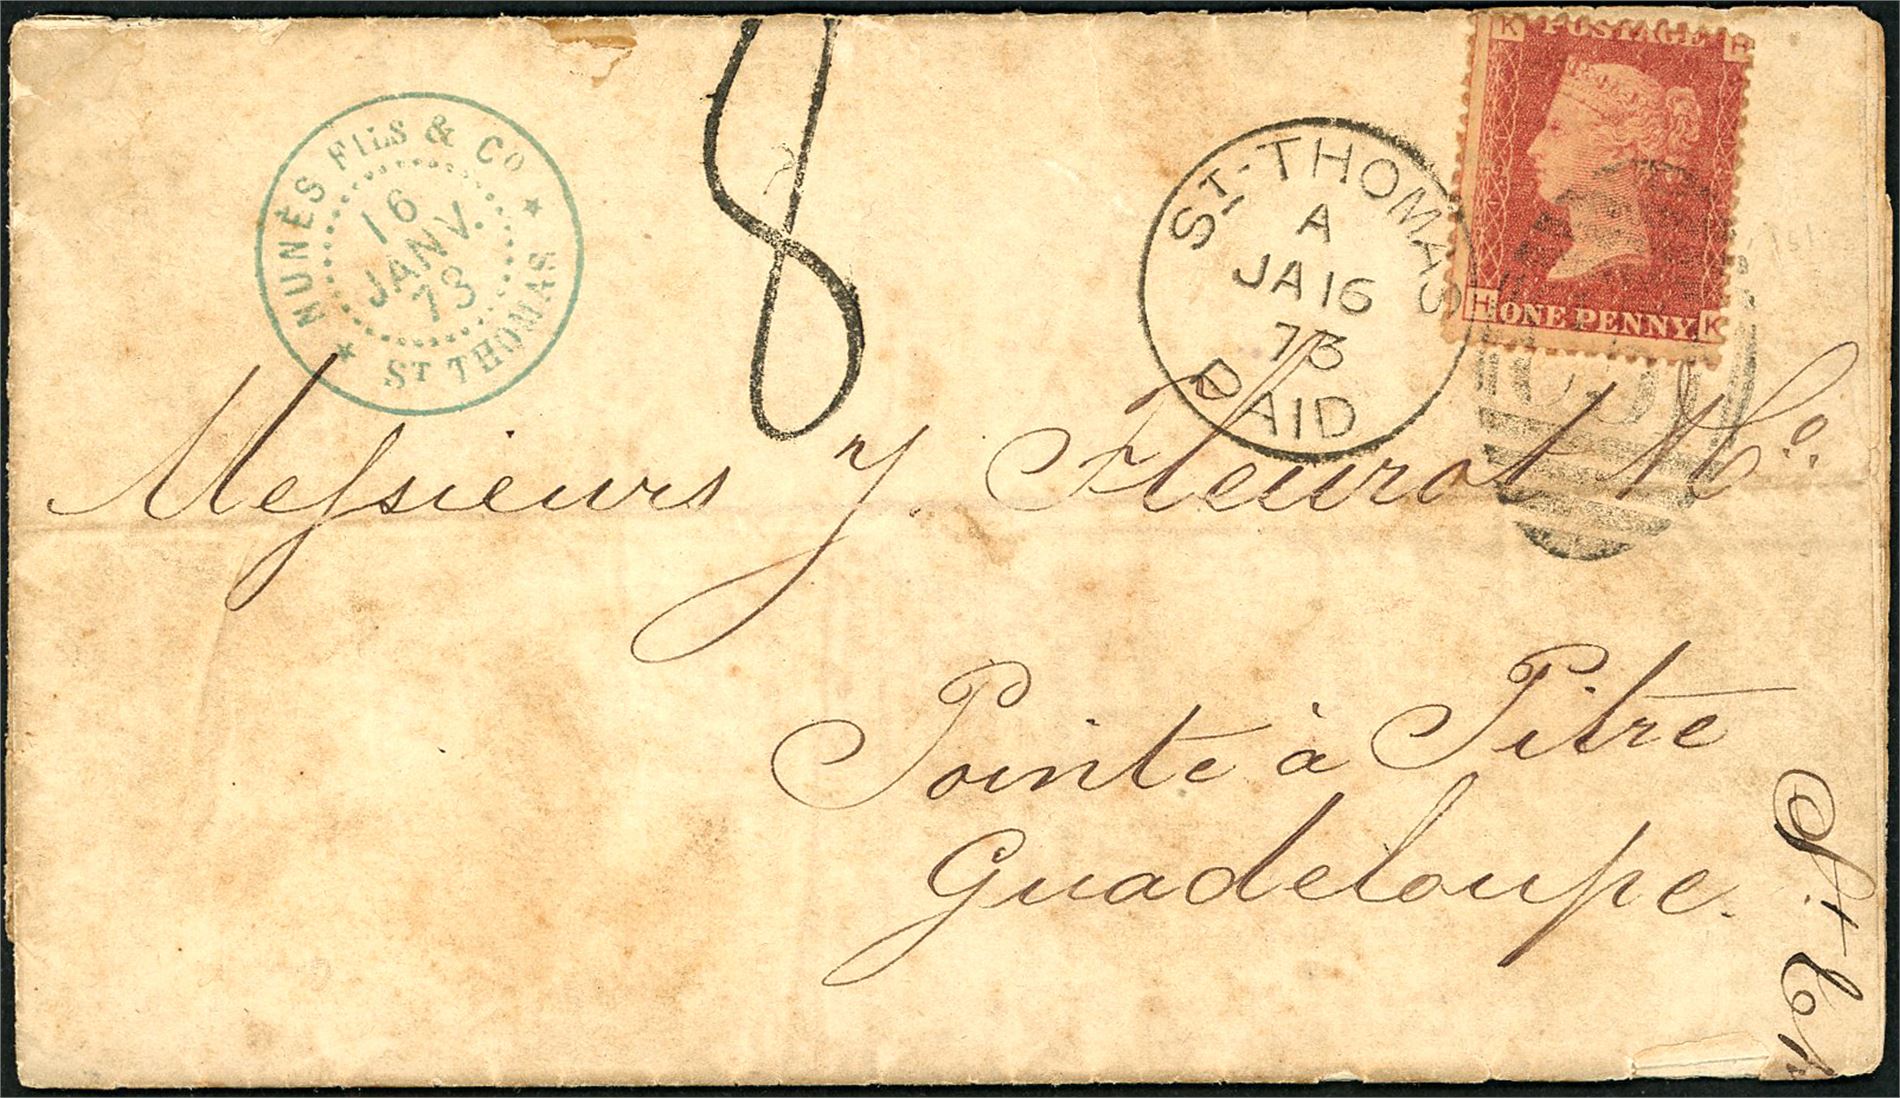 NUNÈS FILS & Co
16
JANV.
73
ST THOMAS
8
ST. THOMAS
A
JA 16
73
PAID
K POSTAGE H
H ONE PENNY K
C51
Messieurs J. Fleurot & Co.
Pointe à Pitre
Guadeloupe.